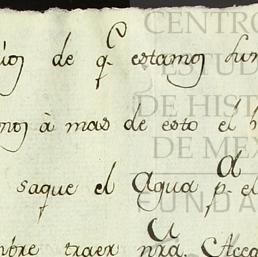 de q.e estamos
à mas de esto el
saque el Agua p.a el
traer nra. Aceq
CENTRO
ESTUD
DE HIST
DE MÉX
FUNDA